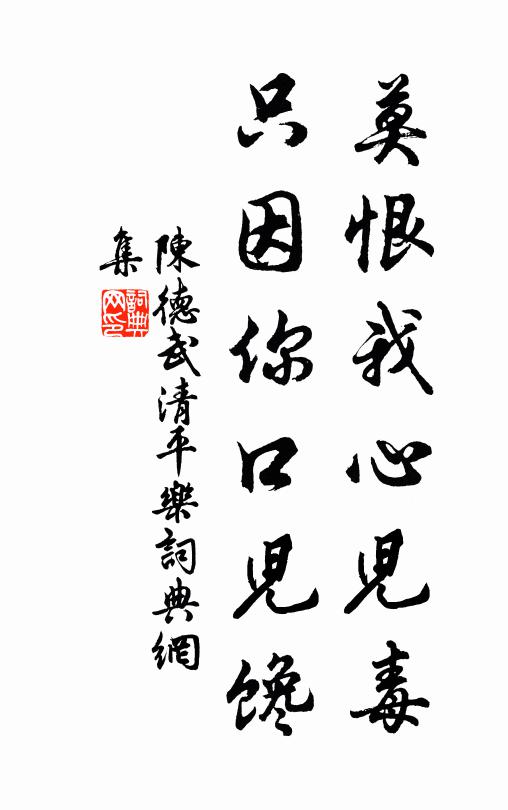 莫恨我心児毒
只因你口児馋
陳德武清平樂詞典網
集
詞典
网印